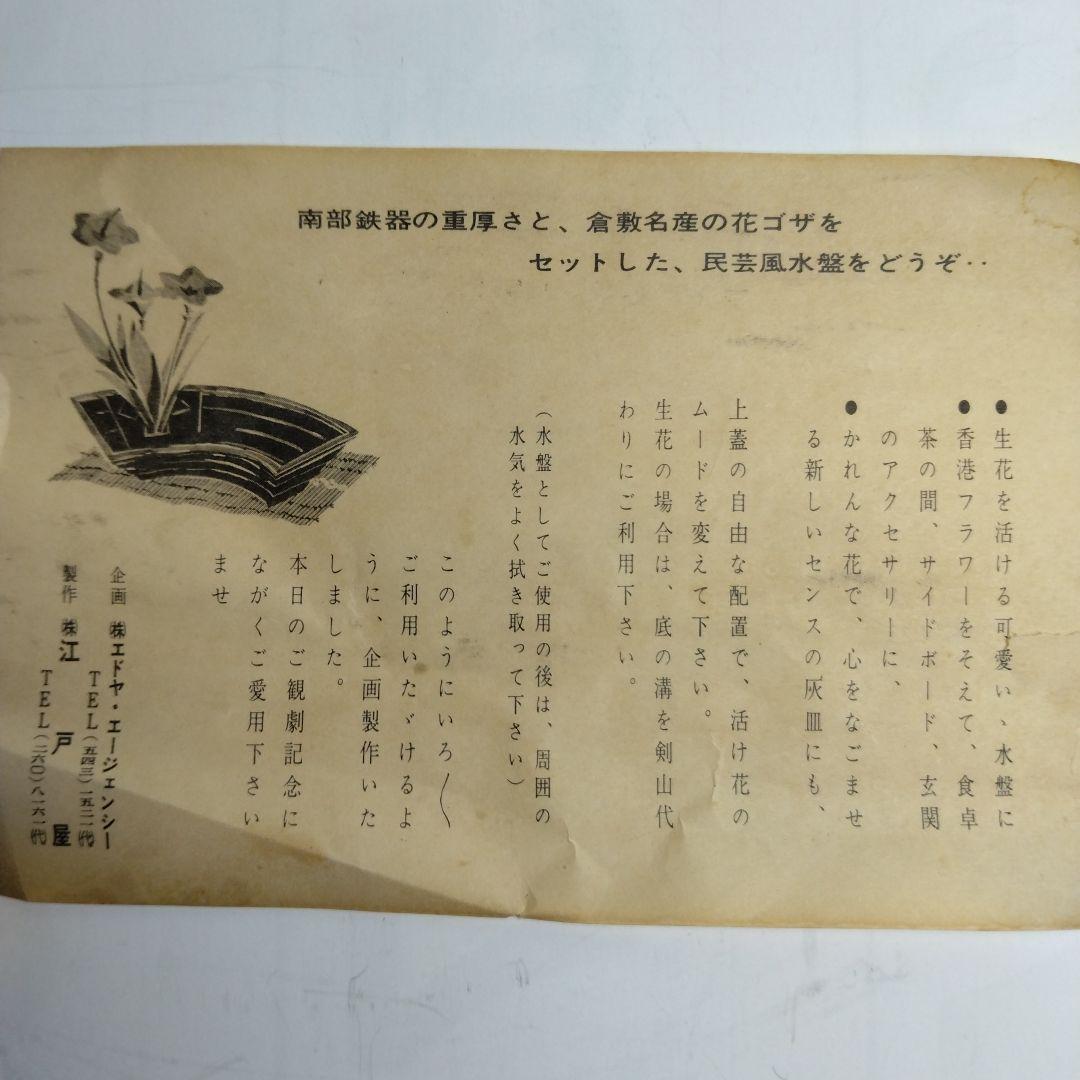 南部鉄器の重厚さと、倉敷名産の花ゴザを
セットした、民芸風水盤をどうぞ‥
●生花を活ける可愛い、水盤に
●香港フラワーをそえて、食卓
茶の間、サイドボード、玄関
のアクセサリーに、
●かれんな花で、心をなごませ
る新しいセンスの灰皿にも、
上蓋の自由な配置で、活け花の
ムードを変えて下さい。
生花の場合は、底の溝を剣山代
わりにご利用下さい。
(水盤としてご使用の後は、周囲の
水気をよく拭き取って下さい)
このようにいろ〱
ご利用いたゞけるよ
うに、企画製作いた
しました。
本日のご観劇記念に
ながくご愛用下さい
ませ
企画 ㈱エドヤ・エージェンシー
TEL(五四三)一五二一㈹
製作 ㈱江戸屋
TEL(二六〇)八一六一㈹